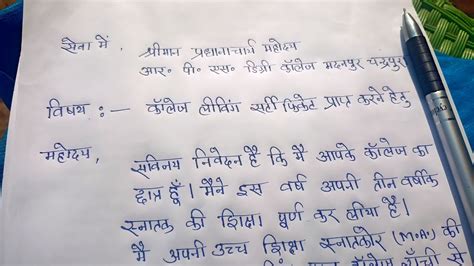 सेवा में, श्रीमान प्रधानाचार्य महोदय
आर॰ पी॰ एस॰ डिग्री कॉलेज मदनपुर चन्द्रपुरा
विषय :— कॉलेज लीविंग सर्टीफिकेट प्राप्त करने हेतु
महोदय,
सविनय निवेदन है कि मैं आपके कॉलेज का
छात्र हूँ। मैंने इस वर्ष अपनी तीन वर्षीके
स्नातक की शिक्षा पूर्ण कर लीया है।
मैं अपनी उच्च शिक्षा स्नातकोर (M.A) की
कॉलेज राँची से